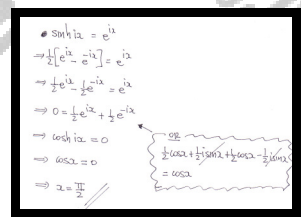 • sinh ix = e^{ix}
⇒ ½[e^{ix} - e^{-ix}] = e^{ix}
⇒ ½e^{ix} - ½e^{-ix} = e^{ix}
⇒ 0 = ½e^{ix} + ½e^{-ix}
⇒ cosh ix = 0
⇒ cosx = 0
⇒ x = π/2
OR
½cosx + ½isinx + ½cosx - ½isinx
= cosx